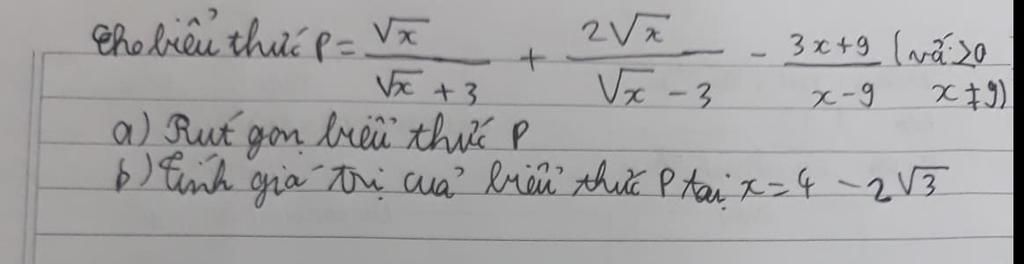 Cho biểu thức P = \frac{\sqrt{x}}{\sqrt{x}+3} + \frac{2\sqrt{x}}{\sqrt{x}-3} - \frac{3x+9}{x-9} ( ≥0 x ≠ 9)
a) Rút gọn biểu thức P
b) Tính giá trị của biểu thức P tại x = 4 - 2\sqrt{3}